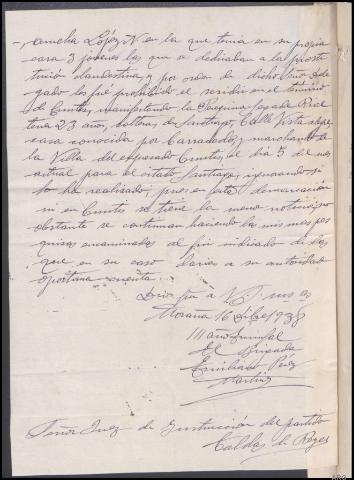 Amelia López N en la que tenia en su propia
casa 3 jovenes las que se dedicaban a la prosti
tución clandestina, y por orden de dicho Juz
gado les fué prohibido el residir en el termino
de Cuntis, manifestando la
tener 23 años, soltera, de Santiago, Calle Vista alegre
casa conocida por Carradolo y marchando de
la Villa del expresado Cuntis, el dia 5 del mes
actual para el citado Santiago, ignorando si
lo ha realizado; pues en esta demarcación
ni en Cuntis se tiene la menor noticia, no
obstante se continuan haciendo las mismas pes
quisas encaminadas al fin indicado de las
que en su caso daria a su autoridad
oportuna cuenta.
Dios gue a V. muchos as
Moraña 16 Dbre 1938
III año Triunfal
El Brigada
Emiliano Pérez
Martín
Señor Juez de Instrucción del partido
Caldas de Reyes